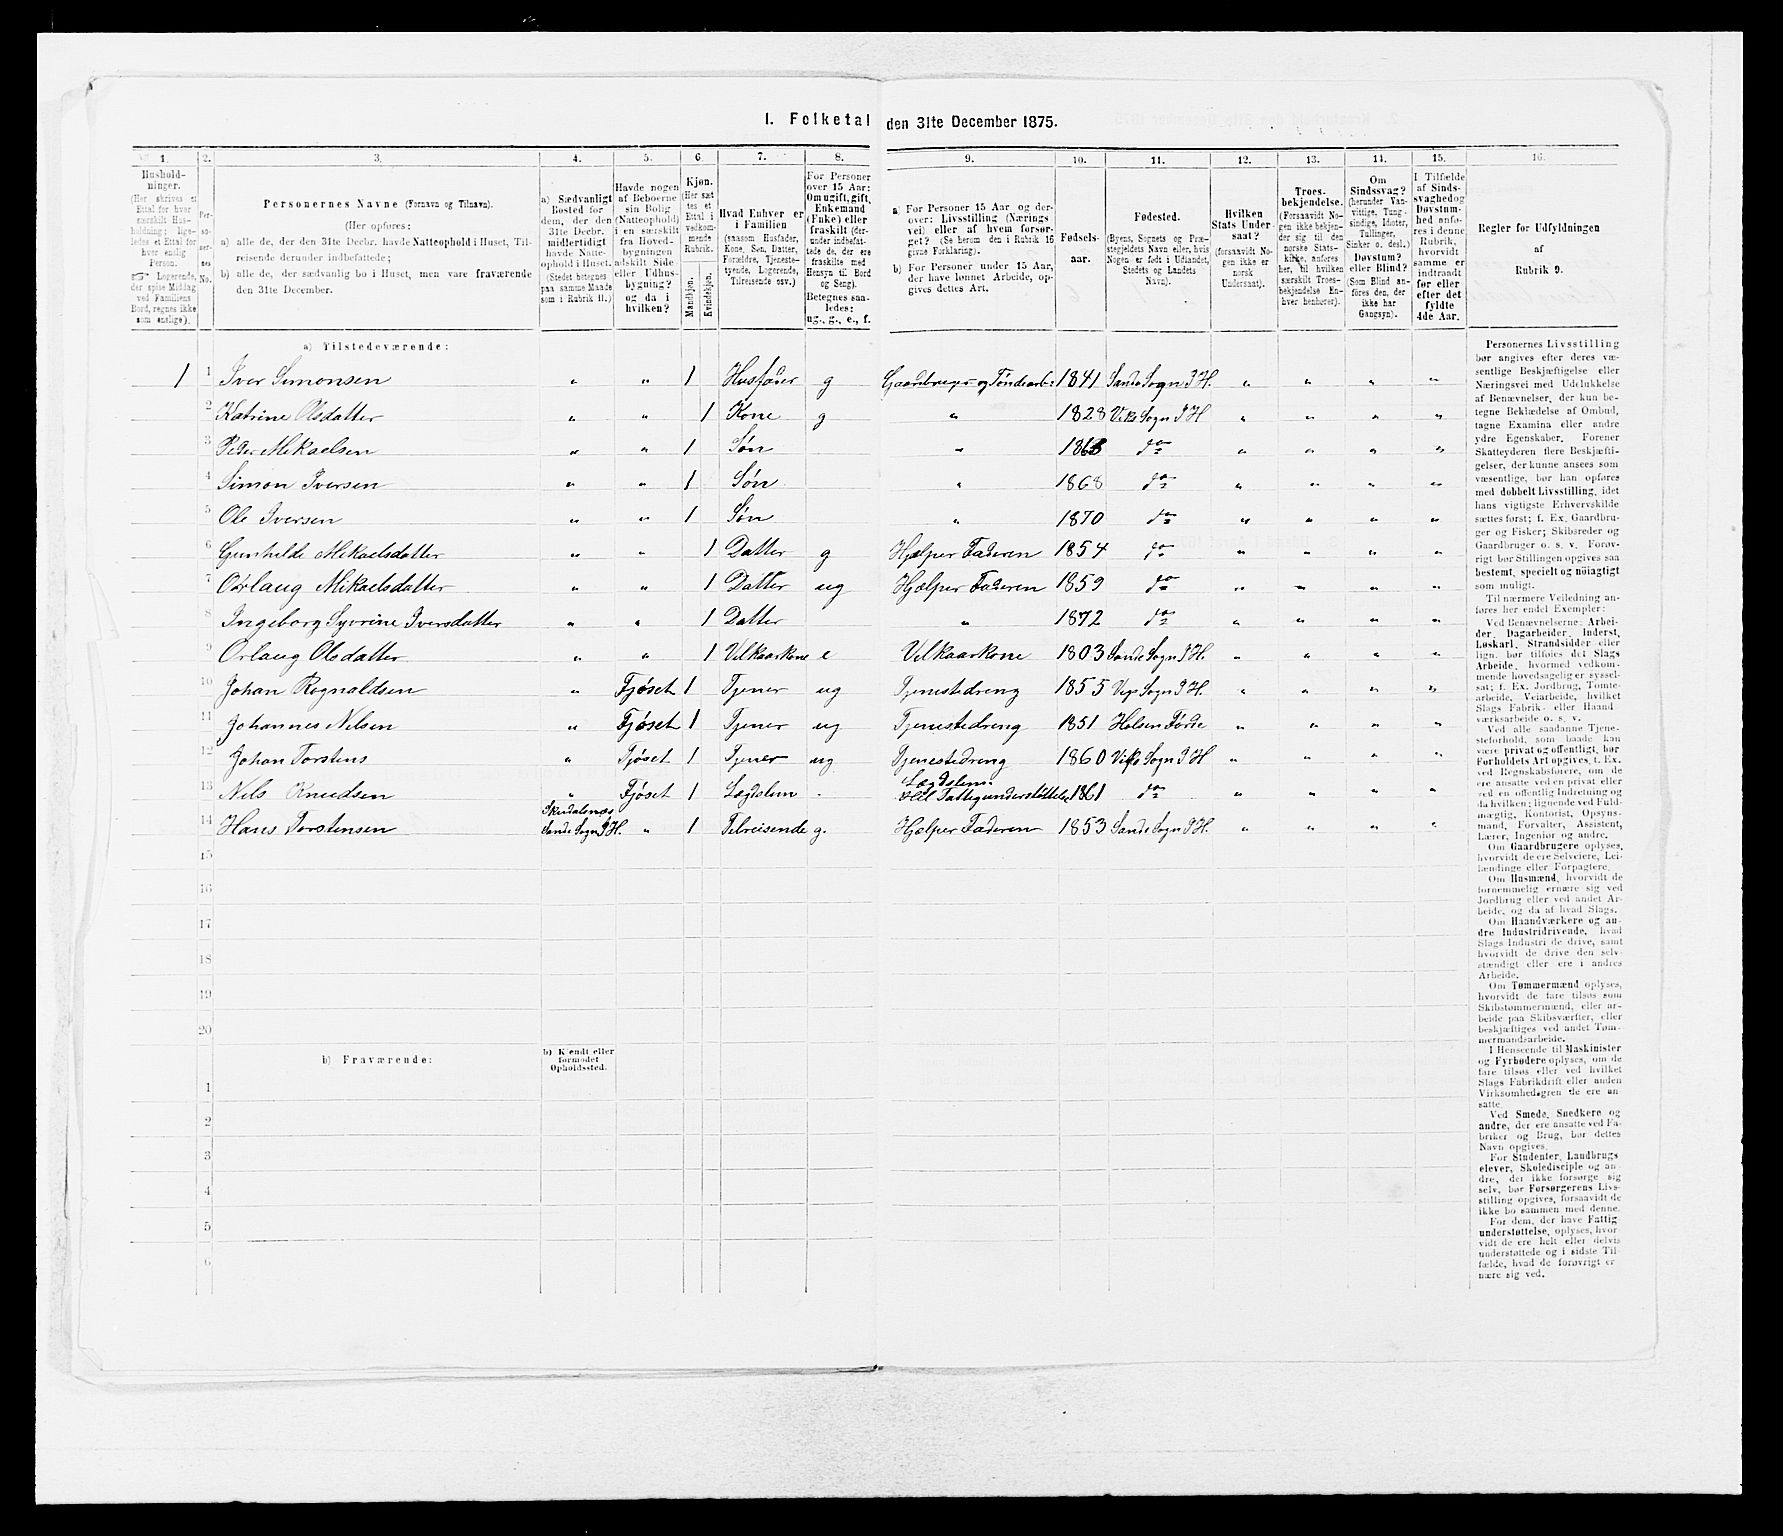 1. Folketal den 31te December 1875.
1. 2. 3. 4. 5. 6. 7. 8. 9. 10. 11. 12. 13. 14. 15. 16.
Husholdninger.
(Her skrives et Ettal for hver særskilt Husholdning; ligeledes et Ettal for hver enslig Person.
☞ Logerende, der spise Middag ved Familiens Bord, regnes ikke som enslige).
Personernes No.
Personernes Navne (Fornavn og Tilnavn).
(Her opføres:
a) alle de, der den 31te Decbr. havde Natteophold i Huset, Tilreisende derunder indbefattede;
b) alle de, der sædvanlig bo i Huset, men vare fraværende den 31te December.
a) Sædvanligt Bosted for dem, der den 31te Decbr. midlertidigt havde Natteophold i Huset.
(Stedet betegnes paa samme Maade som i Rubrik 11.)
Havde nogen af Beboerne sin Bolig (Natteophold) i en særskilt fra Hovedbygningen adskilt Side eller Udhusbygning? og da i hvilken?
Kjøn.
(Her sættes et Ettal i vedkommende Rubrik.
Mandkjøn. Kvindekjøn.
Hvad Enhver er i Familien
(saasom Husfader, Kone, Søn, Datter, Forældre, Tjenestetyende, Logerende, Tilreisende osv.)
For Personer over 15 Aar: Om ugift, gift, Enkemand (Enke) eller fraskilt (derunder indbefattede de, der ere fraskilte med Hensyn til Bord og Seng).
Betegnes saaledes: ug., g., e., f.
a) For Personer 15 Aar og derover: Livsstilling (Næringsvei) eller af hvem forsørget? (Se herom den i Rubrik 16 givne Forklaring).
b) For Personer under 15 Aar, der have lønnet Arbeide, opgives dettes Art.
Fødselsaar.
Fødested.
(Byens, Sognets og Præstegjeldets Navn eller, hvis Nogen er født i Udlandet, Stedets og Landets Navn).
Hvilken Stats Undersaat?
(forsaavidt Nogen ikke er norsk Undersaat).
Troesbekjendelse.
(Forsaavidt Nogen ikke bekjender sig til den norske Statskirke, anføres her, til hvilken særskilt Troesbekjendelse Enhver henhører).
Om Sindssvag?
(herunder Vanvittige, Tungsindige, Idioter, Tullinger, Sinker o. desl.)
Døvstum? eller Blind?
(Som Blind anføres den, der ikke har Gangsyn).
I Tilfælde af Sindssvaghed og Døvstumhed anføres i denne Rubrik, hvorvidt samme er indtraadt før eller efter det fyldte 4de Aar.
Regler for Udfyldningen af Rubrik 9.
a) Tilstedeværende:
1 1 Iver Simonsen " " 1 Husfader g Gaardbruger og Tøndearb: 1841 Sande Sogn I H. " " " "
2 Katrine Olsdatter " " 1 Kone g " 1828 Viks Sogn I H " " " "
3 Peder Mikaelsen " " 1 Søn " 1863 do " " " "
4 Simon Iversen " " 1 Søn " 1868 do " " " "
5 Ole Iversen " " 1 Søn " 1870 do " " " "
6 Gunhilde Mikaelsdatter " " 1 Datter g Hjælper Faderen 1854 do " " " "
7 Orlaug Mikaelsdatter " " 1 Datter ug Hjælper Faderen 1859 do " " " "
8 Ingeborg Syvrine Iversdatter " " 1 Datter " 1872 do " " " "
9 Orlaug Olsdatter " " 1 Vilkaarkone e Vilkaarkone 1803 Sande Sogn I H. " " " "
10 Johan Rognaldsen " Fjøset 1 Tjener ug Tjenestedreng 1855 Viks Sogn I H. " " " "
11 Johannes Nilsen " Fjøset 1 Tjener ug Tjenestedreng 1851 Holsen Førde " " " "
12 Johan Torstens " Fjøset 1 Tjener ug Tjenestedreng 1860 Viks Sogn I H " " " "
13 Nils Knudsen " Fjøset 1 Lægdslem " Lægdslem. Fattigunderstøttelse 1861 do " " " "
14 Hans Torstensen Sande Sogn I H. " 1 Tilreisende g. Hjælper Faderen 1853 Sande Sogn I H. " " " "
15
16
17
18
19
20
b) Fraværende:
b) Kjendt eller formodet Opholdssted.
1
2
3
4
5
6
Personernes Livsstilling
bør angives efter deres væ-
sentlige Beskjæftigelse eller
Næringsvei med Udelukkelse
af Benævnelser, der kun be-
tegne Beklædelse af Ombud,
tagne Examina eller andre
ydre Egenskaber. Forener
Skatteyderen flere Beskjæfti-
gelser, der kunne ansees som
væsentlige, bør han opføres
med dobbelt Livsstilling, idet
hans vigtigste Erhvervskilde
sættes først; f. Ex. Gaardbru-
ger og Fisker; Skibsreder og
Gaardbruger o. s. v. Forøv-
rigt bør Stillingen opgives saa
bestemt, specielt og nöiagtigt
som muligt.
Til nærmere Veiledning an-
føres her endel Exempler:
Ved Benævnelserne: Arbei-
der, Dagarbeider, Inderst,
Løskarl, Strandsidder eller
lign. bør tilføies det Slags
Arbeide, hvormed vedkom-
mende hovedsagelig er syssel-
sat; f. Ex. Jordbrug, Tomte-
arbeide, Veiarbeide, hvilket
Slags Fabrik- eller Haand-
værksarbeide o. s. v.
Ved alle saadanne Tjene-
steforhold, som baade kan
være privat og offentligt, bør
Forholdets Art opgives, f. Ex.
ved Regnskabsførere, om de
ere ansatte ved en privat eller
ved en offentlig Indretning og
da hvilken; lignende ved Fuld-
mægtig, Kontorist, Opsyns-
mand, Forvalter, Assistent,
Lærer, Ingeniør og andre.
Om Gaardbrugere oplyses,
hvorvidt de ere Selveiere, Lei-
lændinge eller Forpagtere.
Om Husmænd, hvorvidt de
fornemmelig ernære sig ved
Jordbrug eller ved andet Ar-
beide, og da af hvad Slags.
Om Haandværkere og an-
dre Industridrivende, hvad
Slags Industri de drive, samt
hvorvidt de drive den selv-
stændigt eller ere i andres
Arbeide.
Om Tømmermænd oplyses,
hvorvidt de fare tilsøs som
Skibstømmermænd, eller ar-
beide paa Skibsværfter, eller
beskjæftiges ved andet Tøm-
mermandsarbeide.
I Henseende til Maskinister
og Fyrbødere oplyses, om de
fare tilsøs eller ved hvilket
Slags Fabrikdrift eller anden
Virksomhedsgren de ere an-
satte.
Ved Smede, Snedkere og
andre, der ere ansatte ved Fa-
briker og Brug, bør dettes
Navn opgives.
For Studenter, Landbrugs-
elever, Skoledisciple og an-
dre, der ikke forsørge sig
selv, bør Forsørgerens Livs-
stilling opgives, forsaavidt de
ikke bo sammen med denne.
For dem, der have Fattig-
understøttelse, oplyses, hvor-
vidt de ere helt eller delvis
understøttede og i sidste Til-
fælde, hvad de forøvrigt er-
nære sig ved.